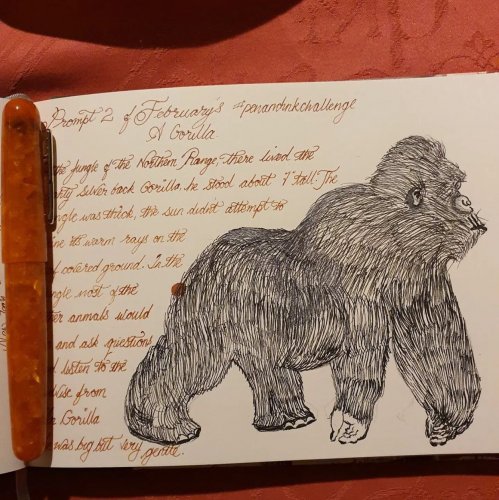 Prompt 2 of February's #penandinkchallenge
A Gorilla
the jungle of the Northern Range, there lived the
Silver back Gorilla. he stood about 7' tall. The
was thick, the sun didn't attempt to
its warm rays on the
covered ground. In the
most of the
animals would
and ask questions
listen to the
from
Gorilla
was big but very gentle.